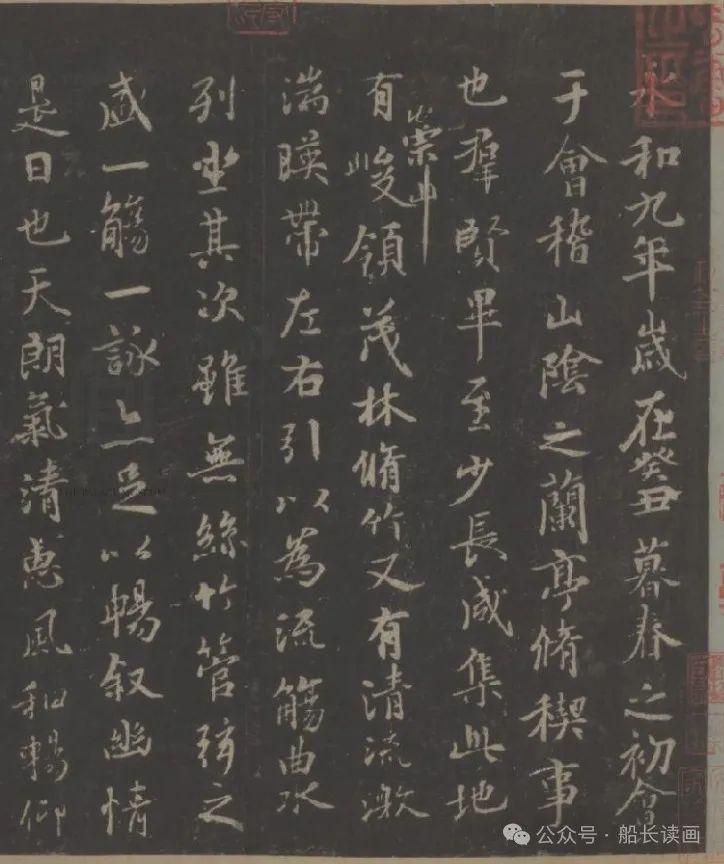 永和九年歲在癸丑暮春之初會
于會稽山陰之蘭亭脩稧事
也羣賢畢至少長咸集此地
有崇山峻領茂林脩竹又有清流激
湍暎帶左右引以為流觴曲水
列坐其次雖無絲竹管弦之
盛一觴一詠亦足以暢叙幽情
是日也天朗氣清惠風和暢仰
公众号·船长读画